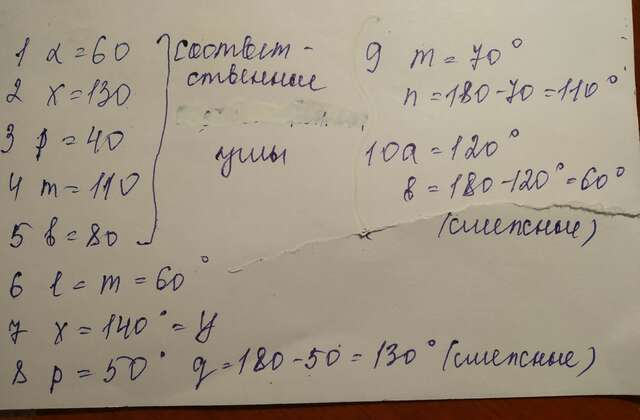 1 α = 60
2 x = 130
3 p = 40
4 m = 110
5 b = 80
соответ-
ственные
углы
6 l = m = 60°
7 x = 140° = y
8 p = 50° q = 180-50 = 130° (смежные)
9 m = 70°
n = 180-70 = 110°
10 a = 120°
b = 180-120° = 60°
(смежные)